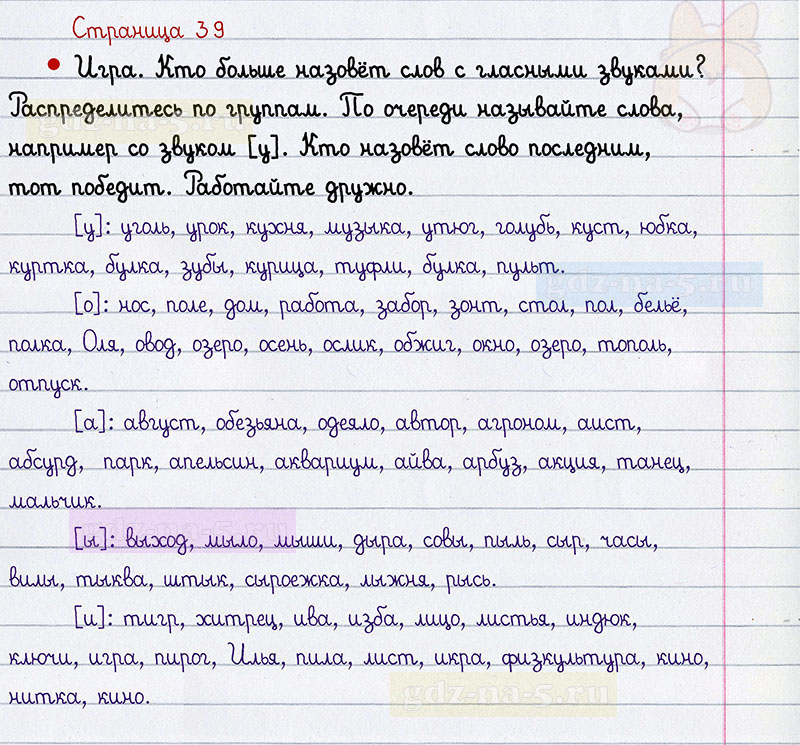 Страница 39
• Игра. Кто больше назовёт слов с гласными звуками?
Распределитесь по группам. По очереди называйте слова,
например со звуком [у]. Кто назовёт слово последним,
тот победит. Работайте дружно.
[у]: уголь, урок, кухня, музыка, утюг, голубь, куст, юбка,
куртка, булка, зубы, курица, туфли, булка, пульт.
[о]: нос, поле, дом, работа, забор, зонт, стол, пол, бельё,
полка, Оля, овод, озеро, осень, ослик, обжиг, окно, озеро, тополь,
отпуск.
[а]: август, обезьяна, одеяло, автор, агроном, аист,
абсурд, парк, апельсин, аквариум, айва, арбуз, акция, танец,
мальчик.
[ы]: выход, мыло, мыши, дыра, совы, пыль, сыр, часы,
вилы, тыква, штык, сыроежка, лыжня, рысь.
[и]: тигр, хитрец, ива, изба, лицо, листья, индюк,
ключи, игра, пирог, Илья, пила, лист, икра, физкультура, кино,
нитка, кино.
gdz-na-5.ru
gdz-na-5.ru
gdz-na-5.ru
gdz-na-5.ru